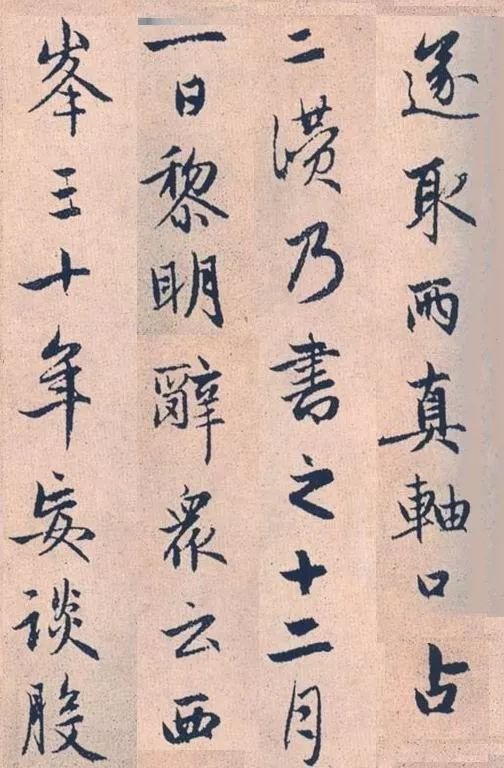 遂取兩真軸口占
二讚乃書之十二月
一日黎明辭衆云西
峯三十年妄談般